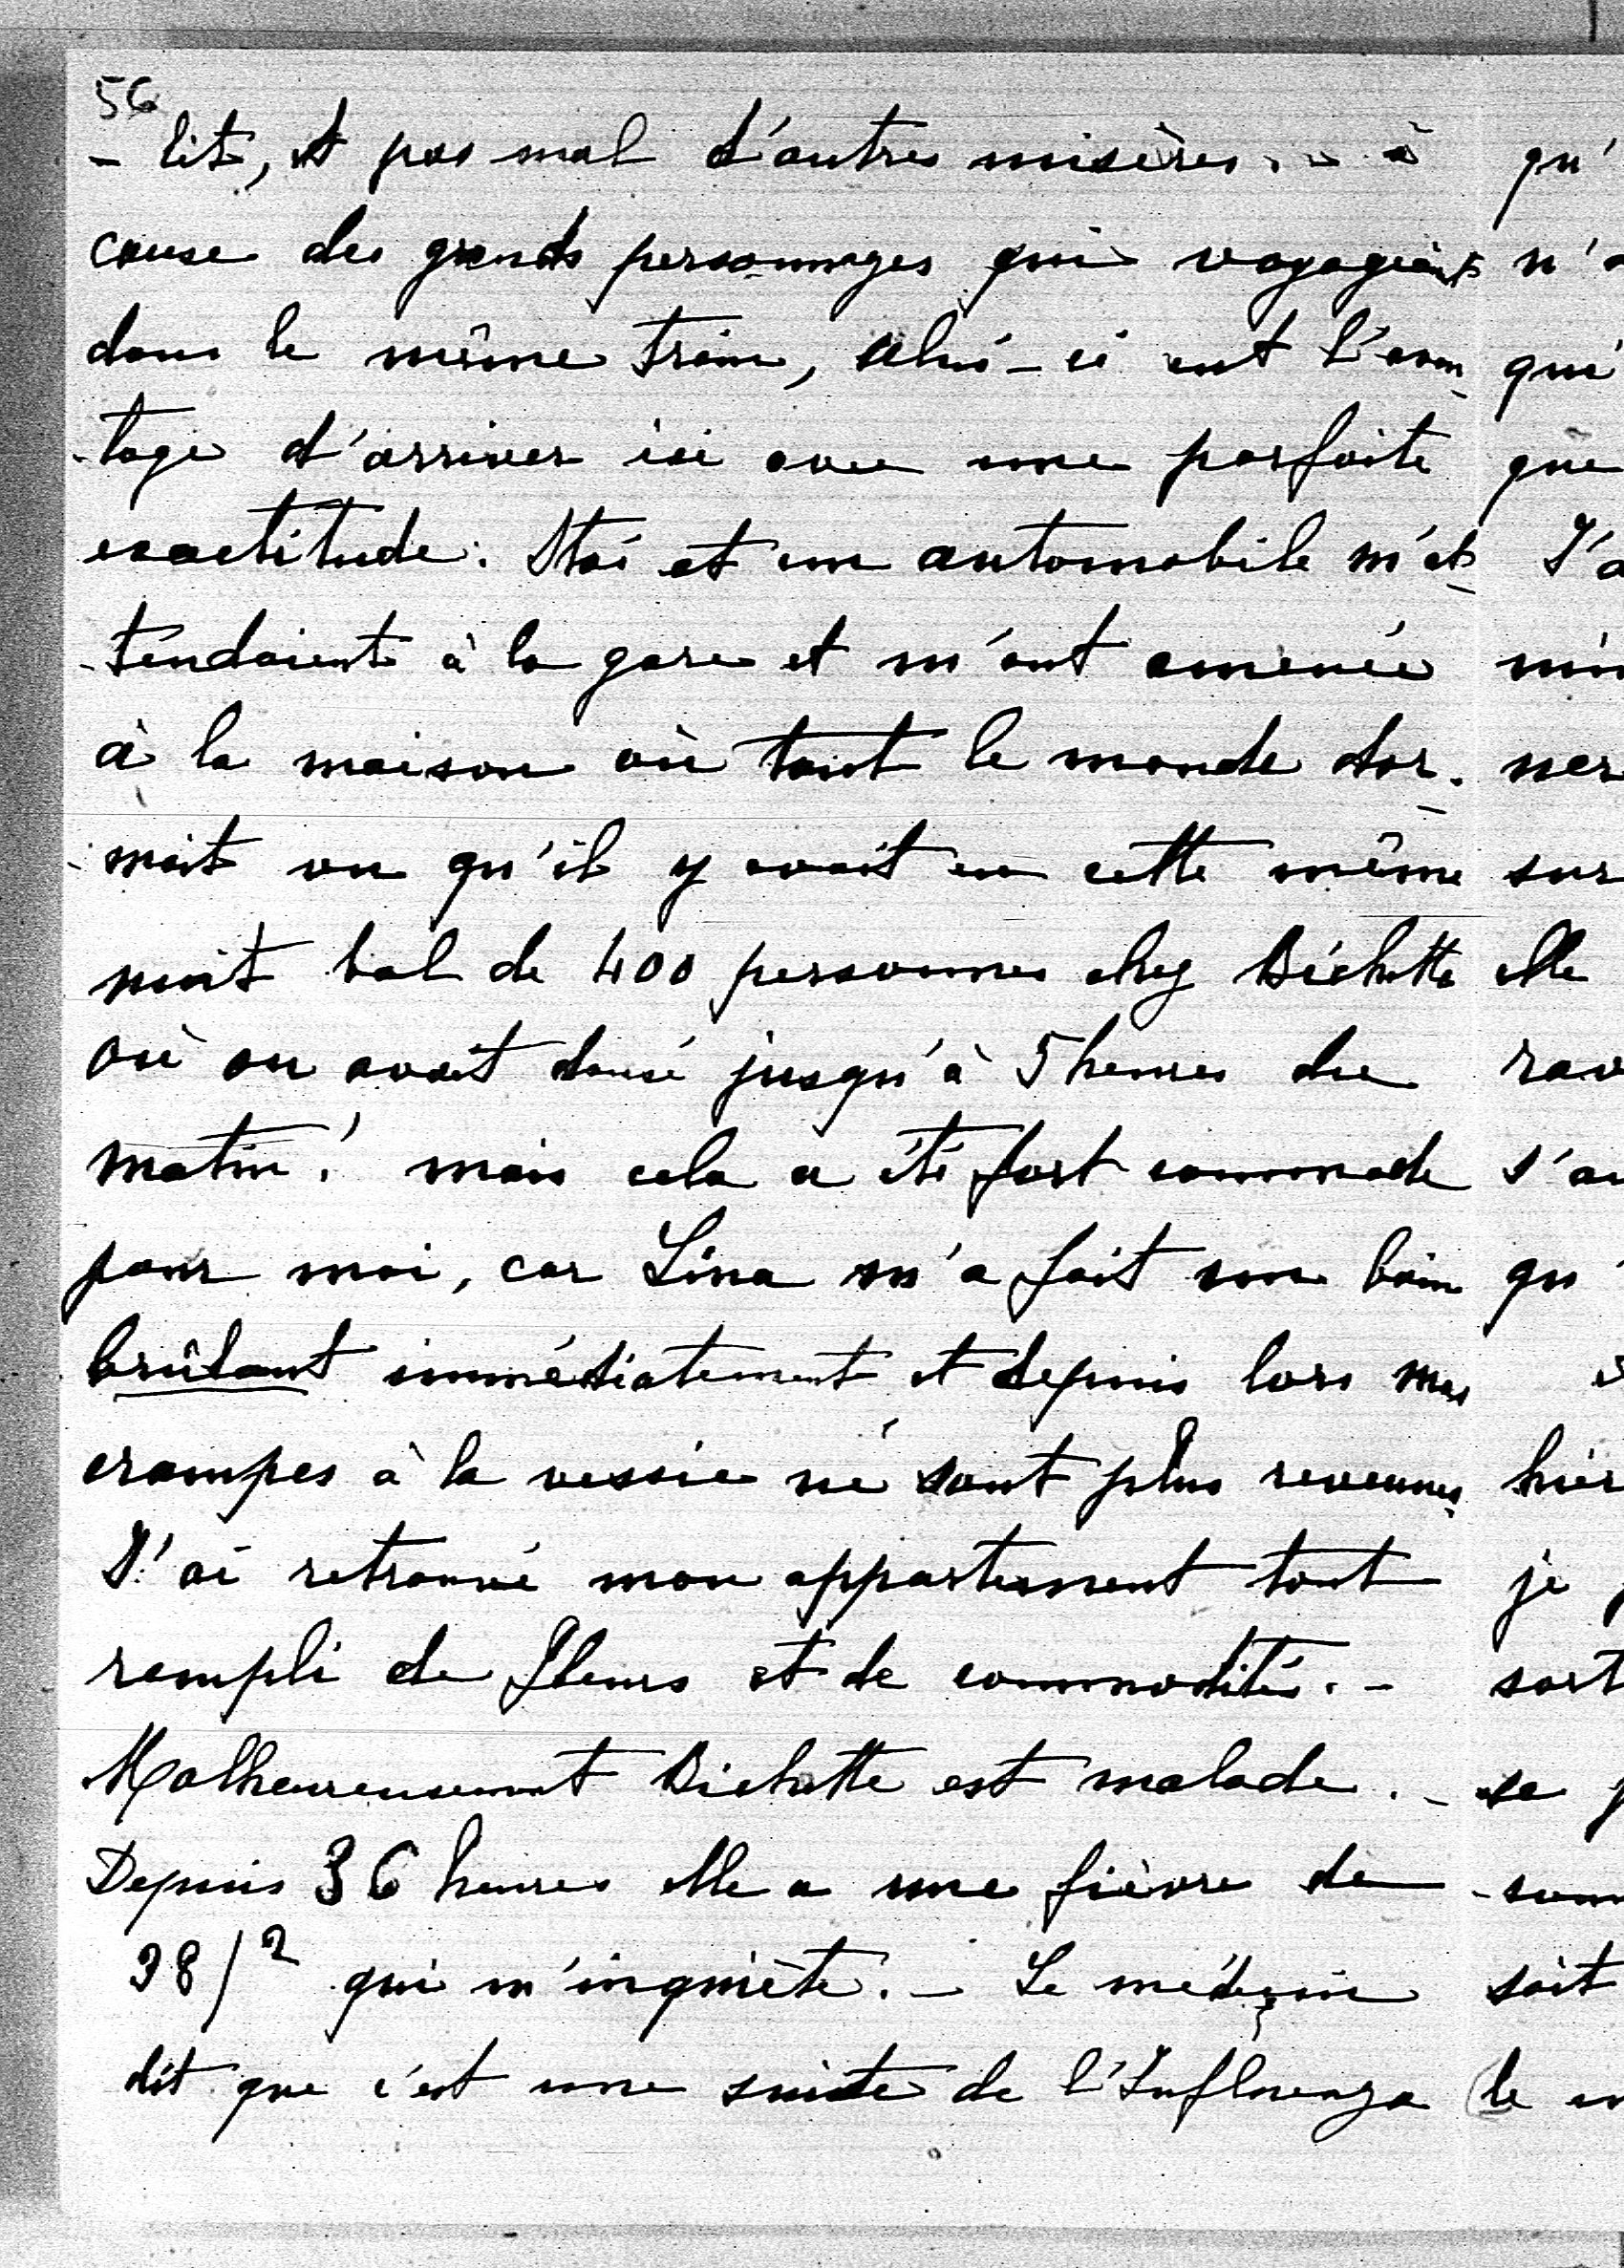 56
- lit, et pas mal d'autres misères. - à
cause des grands personnages qui voyageaient
dans le même train, celui-ci eut l'avan-
-tage d'arriver ici avec une parfaite
exactitude. Stoï et un automobile m'at-
-tendaient à la gare et m'ont amenée
à la maison où tout le monde dor-
-mait vu qu'il y avait eu cette même
nuit bal de 400 personnes chez Bichette
où on avait dansé jusqu'à 5 heures du
matin! mais cela a été fort commode
pour moi, car Lina m'a fait un bain
brûlant immédiatement et depuis lors mes
crampes à la vessie ne sont plus revenues.
J'ai retrouvé mon appartement tout
rempli de fleurs et de commodités. -
Malheureusement Bichette est malade. -
Depuis 36 heures elle a une fièvre de
38/2 qui m'inquiète. - Le médecin
dit que c'est une suite de l'Influenza
qu'
qui
que
J'a
ner
sur
elle
rav
s'au
qu'
hier
je
sort
se
soit
le